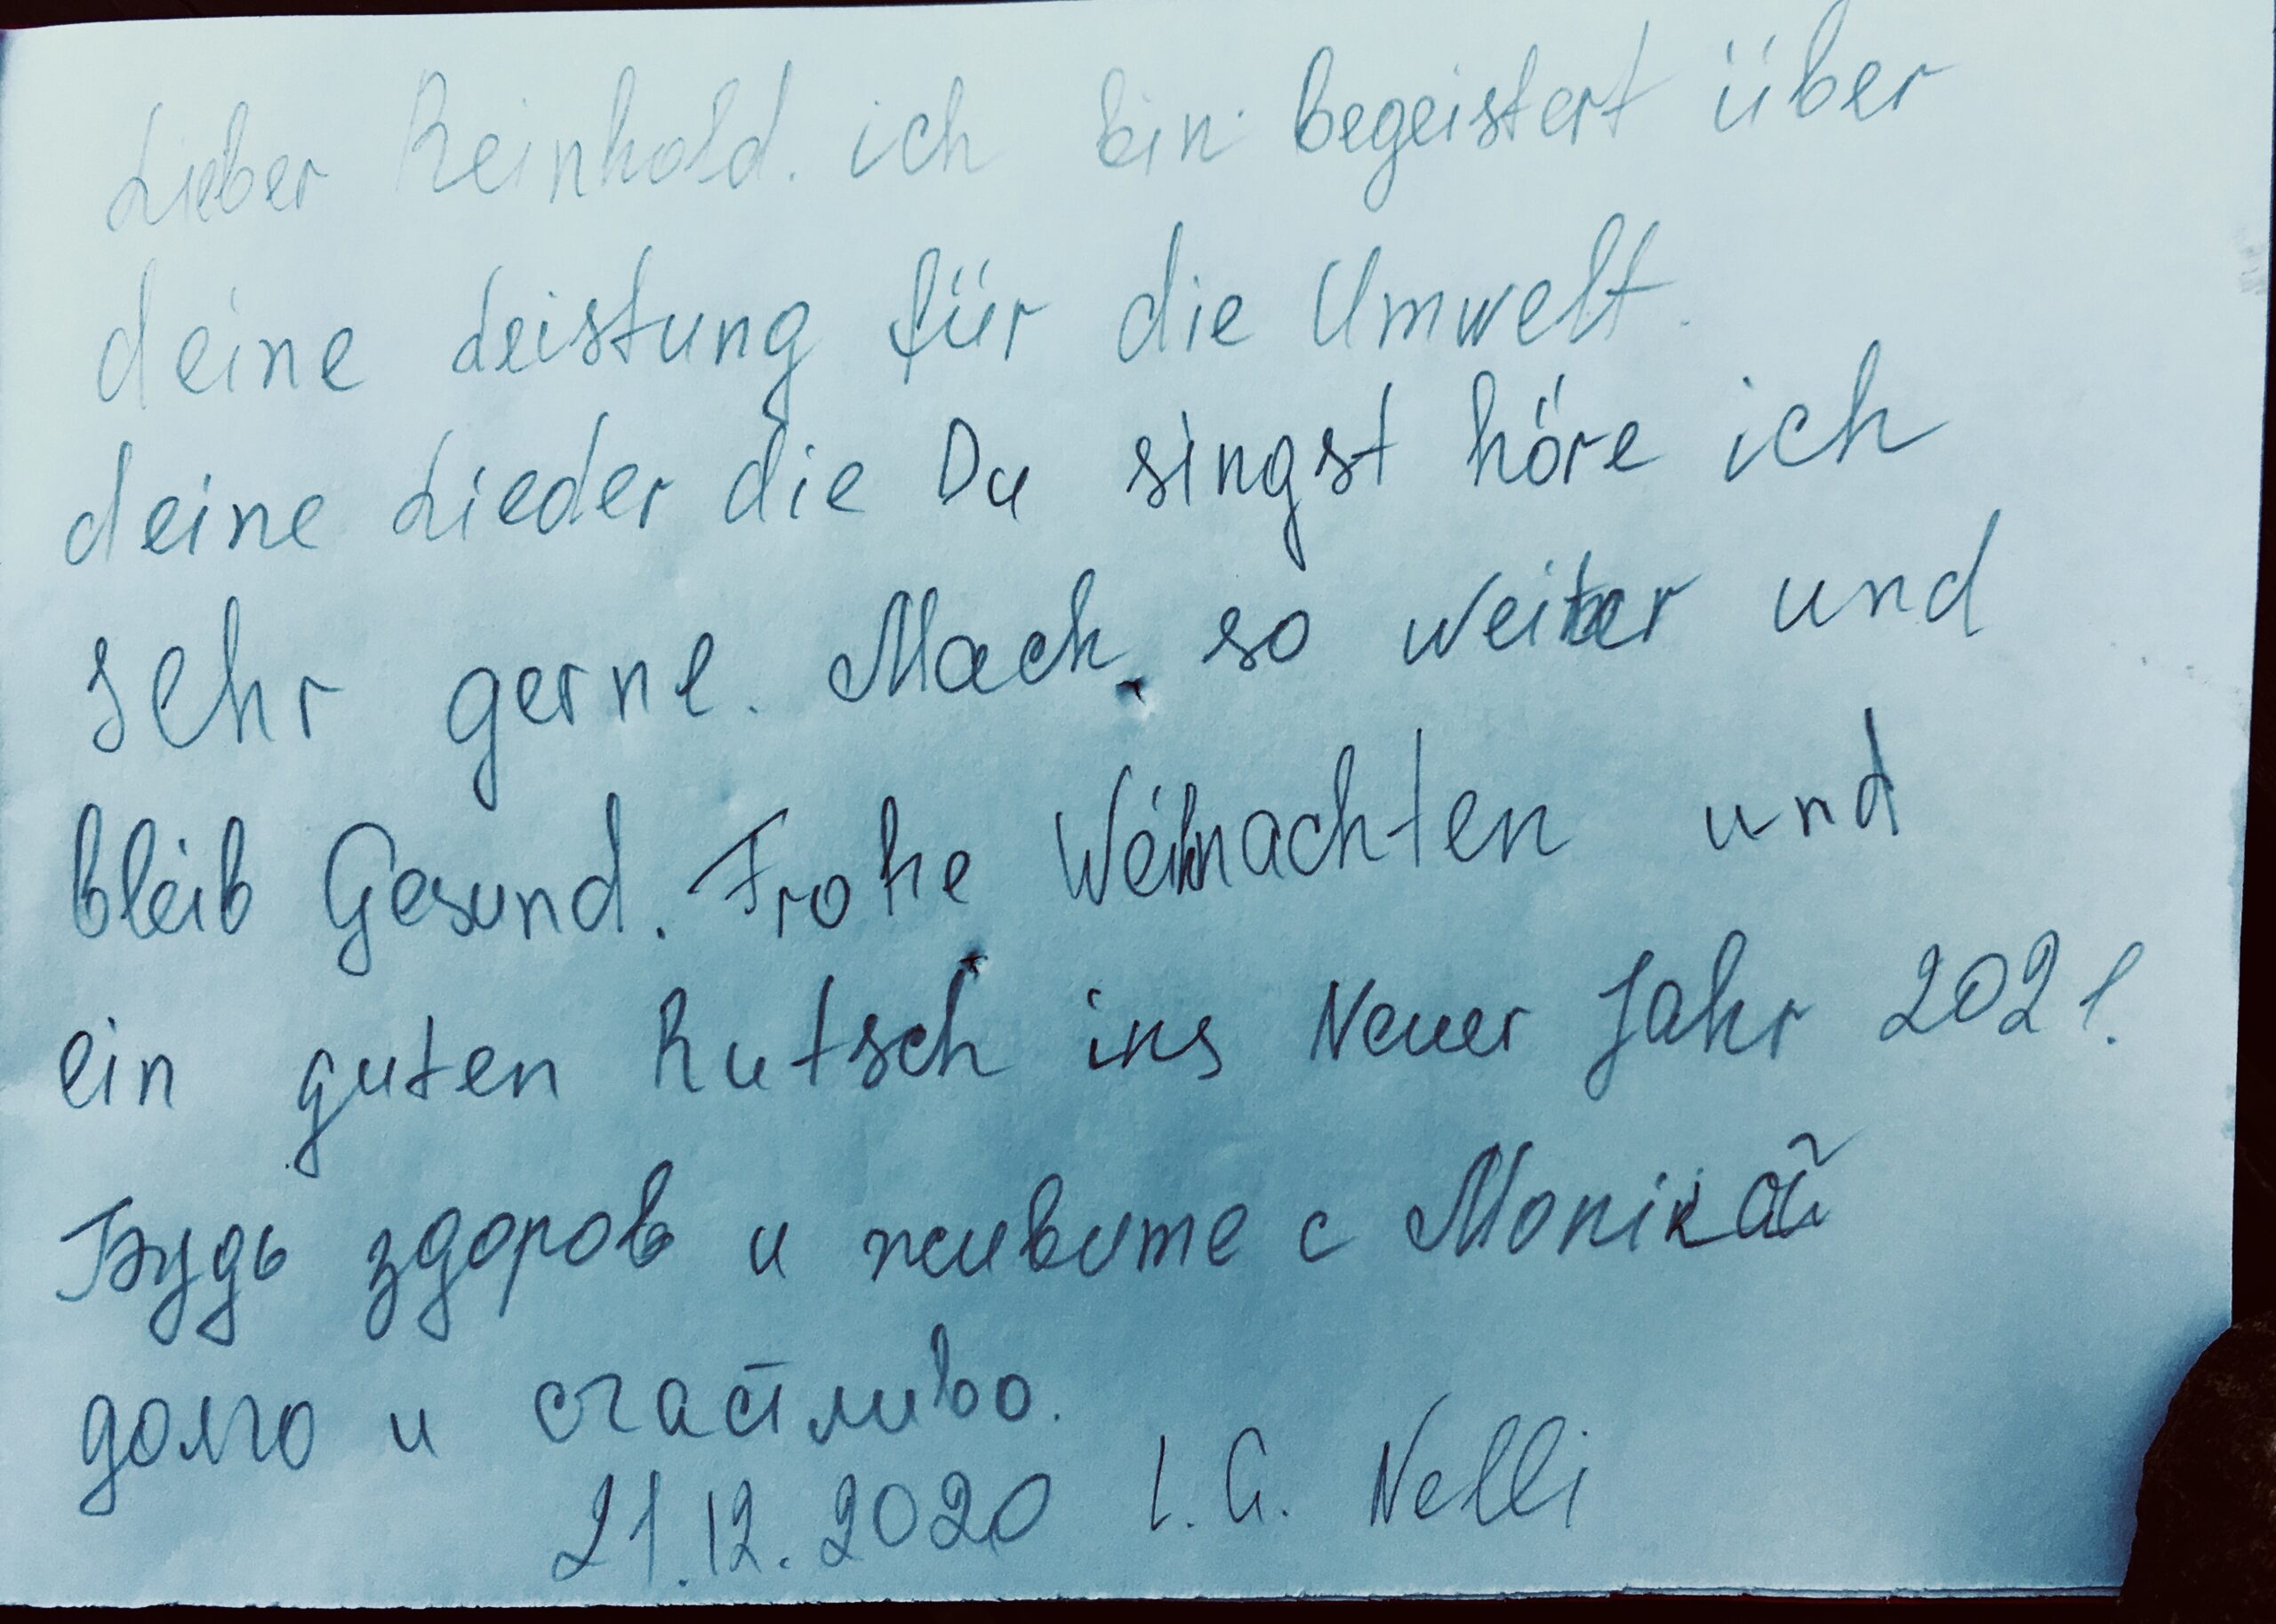 Lieber Reinhold. ich bin begeistert über
deine Leistung für die Umwelt.
deine Lieder die Du singst höre ich
sehr gerne. Mach so weiter und
bleib Gesund. Frohe Weihnachten und
ein guten Rutsch ins Neuer Jahr 2021.
Будь здоров и живите с Monikaй
долго и счастливо.
21.12.2020 L.G. Nelli